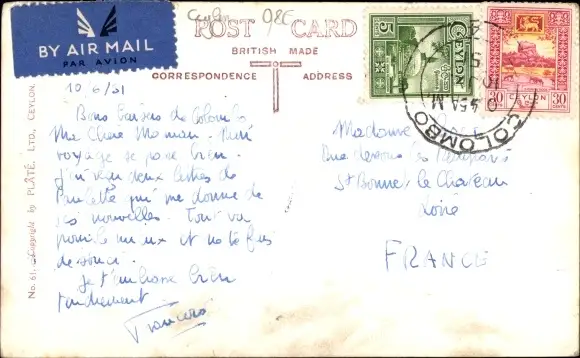 Ceylon 98€
POST CARD
BRITISH MADE
CORRESPONDENCE ADDRESS
BY AIR MAIL
PAR AVION
No. 61. Copyright by PLÂTÉ, LTD., CEYLON.
5 CEYLON
30 CEYLON 30
CENTS
COLOMBO
45 AM
10/6/51
Bons baisers de Colombo
Ma Chère Maman. Mon
voyage se passe bien.
J'ai reçu deux lettres de
Paulette qui me donne de
ses nouvelles. Tout va
pour le mieux et ne te fais
de souci.
Je t'embrasse bien
tendrement
Madame
Rue dessous les Remparts
St Bonnet le Chateau
Loire
FRANCE